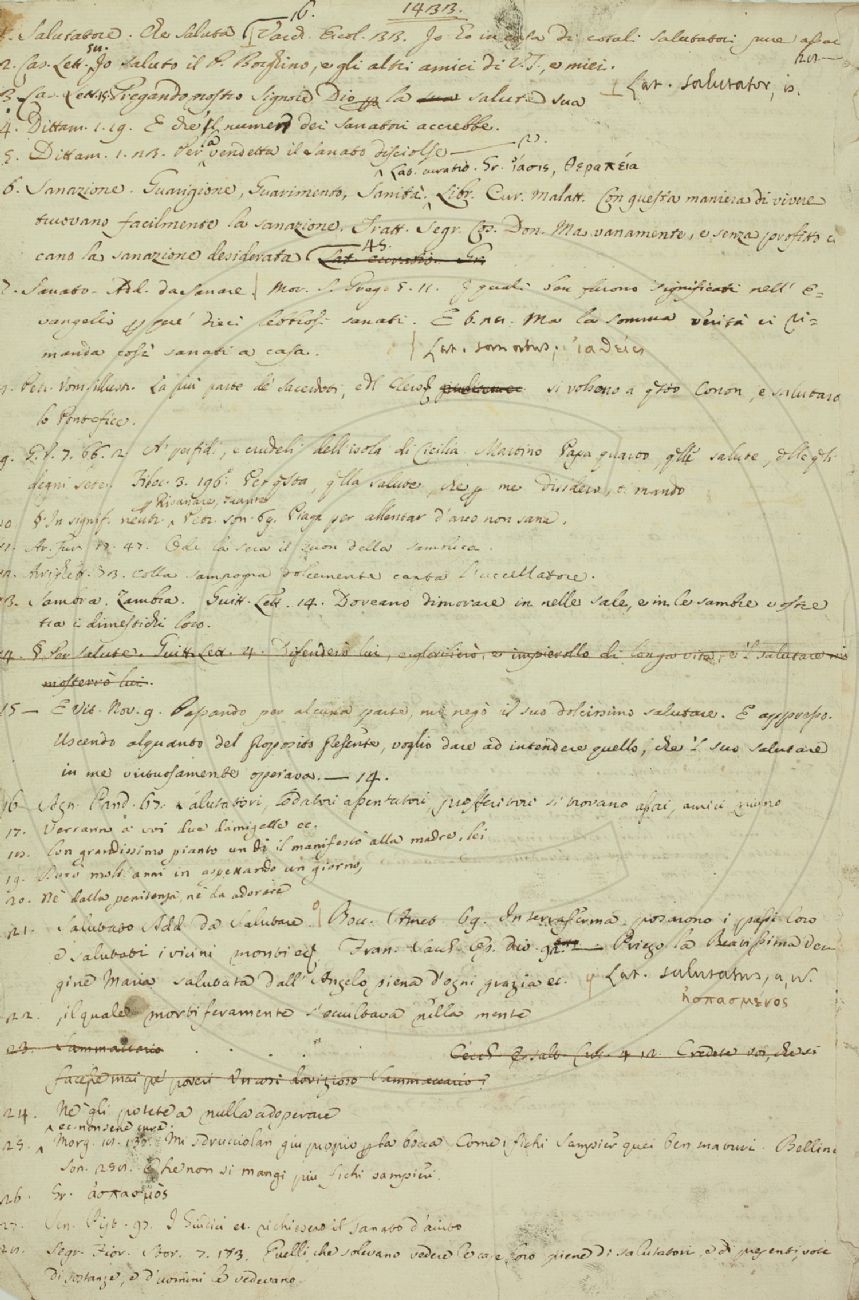 16. 1433.
1. Salutatore. Che saluta Varch. Ercol. 33. Io ho in di cotali salutatori pure assai
2. Cas. Lett. 54. Io saluto il P. Borghino, e gli altri amici di V.S., e miei.
Lat. salutator, is.
3. Cas. Lett. 15. Pregando nostro Signore Dio la salute sua
4. Dittam. 1. 19. E che 'l numero dei sanatori accrebbe.
5. Dittam. 1. 23. Per vendetta il sanato disciolse
Lat. curatio. Gr. ἴασις, θεραπεία
6. Sanazione. Guarigione, Guarimento, Sanità. Libr. Cur. Malatt. Con questa maniera di vivere
truovano facilmente la sanazione. Tratt. Segr. Cos. Don. Ma vanamente, e senza profitto
cano la sanazione desiderata Lat. curatio. Gr.
45.
7. Sanato. Add. da Sanare Mor. S. Greg. 5. 11. I quali ben furono significati nell' E-
vangelio pe' dieci lebbrosi sanati. E 6. 21. Ma la somma verità ci ri-
manda così sanati a casa. Lat. sanatus, ἰαθείς
Petr. Uom. Illustr. La più parte de' sacerdoti, e'l clero si volsono a questo Conon, e salutaro
lo Pontefice.
9. G. V. 7. 66. 2. A' perfidi, e crudeli dell'isola di Cicilia Martino Papa quarto, quelle salute, delle quali
degni sete. Filoc. 3. 196. Per questa, quella salute, che per me desidero, ti mando
Risanare,
10 § In signif. neutr. Petr. son. 69. Piaga per allentar d'arco non sana.
11. Ar. Fur. 17. 47. Ode la sera il suon della sambuca.
12. colla sampogna dolcemente canta l'uccellatore.
13. Sambra. Zambra. Guitt. Lett. 14. Doveano dimorare in nelle sale, e in le sambre vostre
tra i dimestichi loro.
14. § Per salute. Guitt. Lett. 4. Difenderò lui, e glorilierò, e impierollo di lunga vita, e 'l salutare mio
mosterrò lui.
15 — E Vit. Nov. 9. Passando per alcuna parte, mi negò il suo dolcissimo salutare. E appresso.
Uscendo alquanto del proposito presente, voglio dare ad intendere quello, che 'l suo salutare
in me virtuosamente operava. — 14.
16 Agn. Pand. 67. Salutatori, lodatori assentatori, profferitori si trovano assai, amici niuno
17. Verranno a voi due damigelle ec.
18. Con grandissimo pianto un dì il manifestò alla madre, lei
19. Durò molt' anni in aspettando un giorno,
20. Nè dalla penitenza, nè da adorare
21. Salutato Add. da Salutare. Bocc. Amet. 69. In terra ferma posarono i passi loro
e salutati i vicini monti ec. Fran. Sacch. Op. div. Priego la Beatissima Ver-
gine Maria salutata dall'Angelo piena d'ogni grazia ec. Lat. salutatus, a, um.
ἠσπασμένος
22. , il quale morbiferamente s'occultava nella mente
23. Sammaccario Cecch. Esalt. Cr. 4. 12. Credete voi, che si
facesse mai pe' poveri un così dovizioso Sammaccario?
24. Nè gli potete a nulla adoperare
25. Morg. 18. Mi sdrucciolan giù proprio per la bocca Come i fichi sampier quei ben maturi. Bellin.
son. Che non si mangi più fichi sampieri.
26. Gr. ἀσπασμός
27. I Giudici ec. richiesero il sanato d'aiuto
28. Segr. Fior. Stor. 7. 183. Quelli che solevano vedere le case loro piene di salutatori, e di presenti, vote
di sostanze, e d'uomini le vedevano.